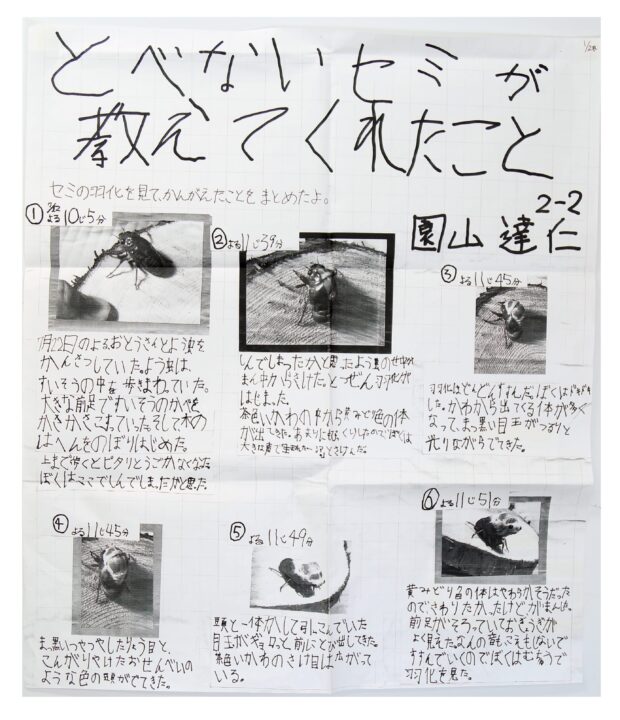 とべないセミが
教えてくれたこと
セミの羽化を見て、かんがえたことをまとめたよ。
2-2
園山達仁
① よる10じ5分
7月22日のよるおとうさんとよう虫を
かんさつしていた。よう虫は
すいそうの中を歩きまわっていた。
大きな前足ですいそうのかべを
かきかきこすっていた。そして木の
はへんをのぼりはじめた。
上まで歩くとピタリとうごかなくなった
ぼくはママでしんでしまったかと思った。
② よる11じ39分
しんでしまったかと思ったよう虫のせ中の
まん中からさけた。とつぜん羽化が
はじまった。
茶色いかわの中からきみどり色の体
が出てきた。あまりにもびっくりしたのでぼくは
大きな声で
とさけんだ。
③ よる11じ45分
羽化はどんどんすすんだ。ぼくはドキドキ
した。かわから出てくる体が多く
なって、まっ黒い目玉がつるりと
光りながらでてきた。
④ よる11じ45分
まっ黒いつやつやしたりょう目と、
こんがりやけたおせんべいの
ような色の頭がでてきた。
⑤ よる11じ49分
頭と一体かして
目玉がギョロっと前にとび出してきた。
細いかわのさけ目はたがって
いる。
⑥ よる11じ51分
黄みどり色の体はやわらかそうだった
のでさわりたかったけどがまんした。
前足がそろっていておぎょうぎが
よく見えた。なんの音もこえもしないで
すすんでいくのでぼくはむ言で
羽化を見た。